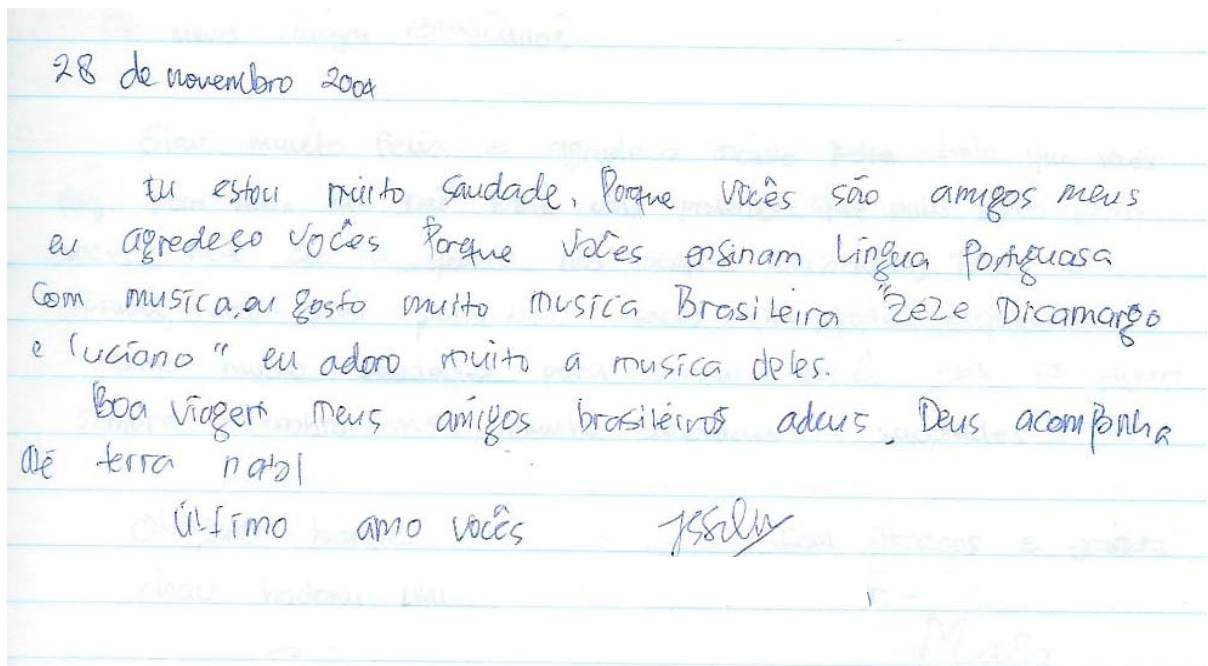 28 de novembro 2004
Eu estou muito saudade, Porque vocês são amigos meus
eu agredeço vocês Porque voces ensinam Língua Portuguasa
Com musica, eu gosto muito musica Brasileira "Zeze Dicamargo
e luciano" eu adoro muito a musica deles.
Boa Viagem meus amigos brasileiros adeus, Deus acompanha
até terra natal
último amo vocês